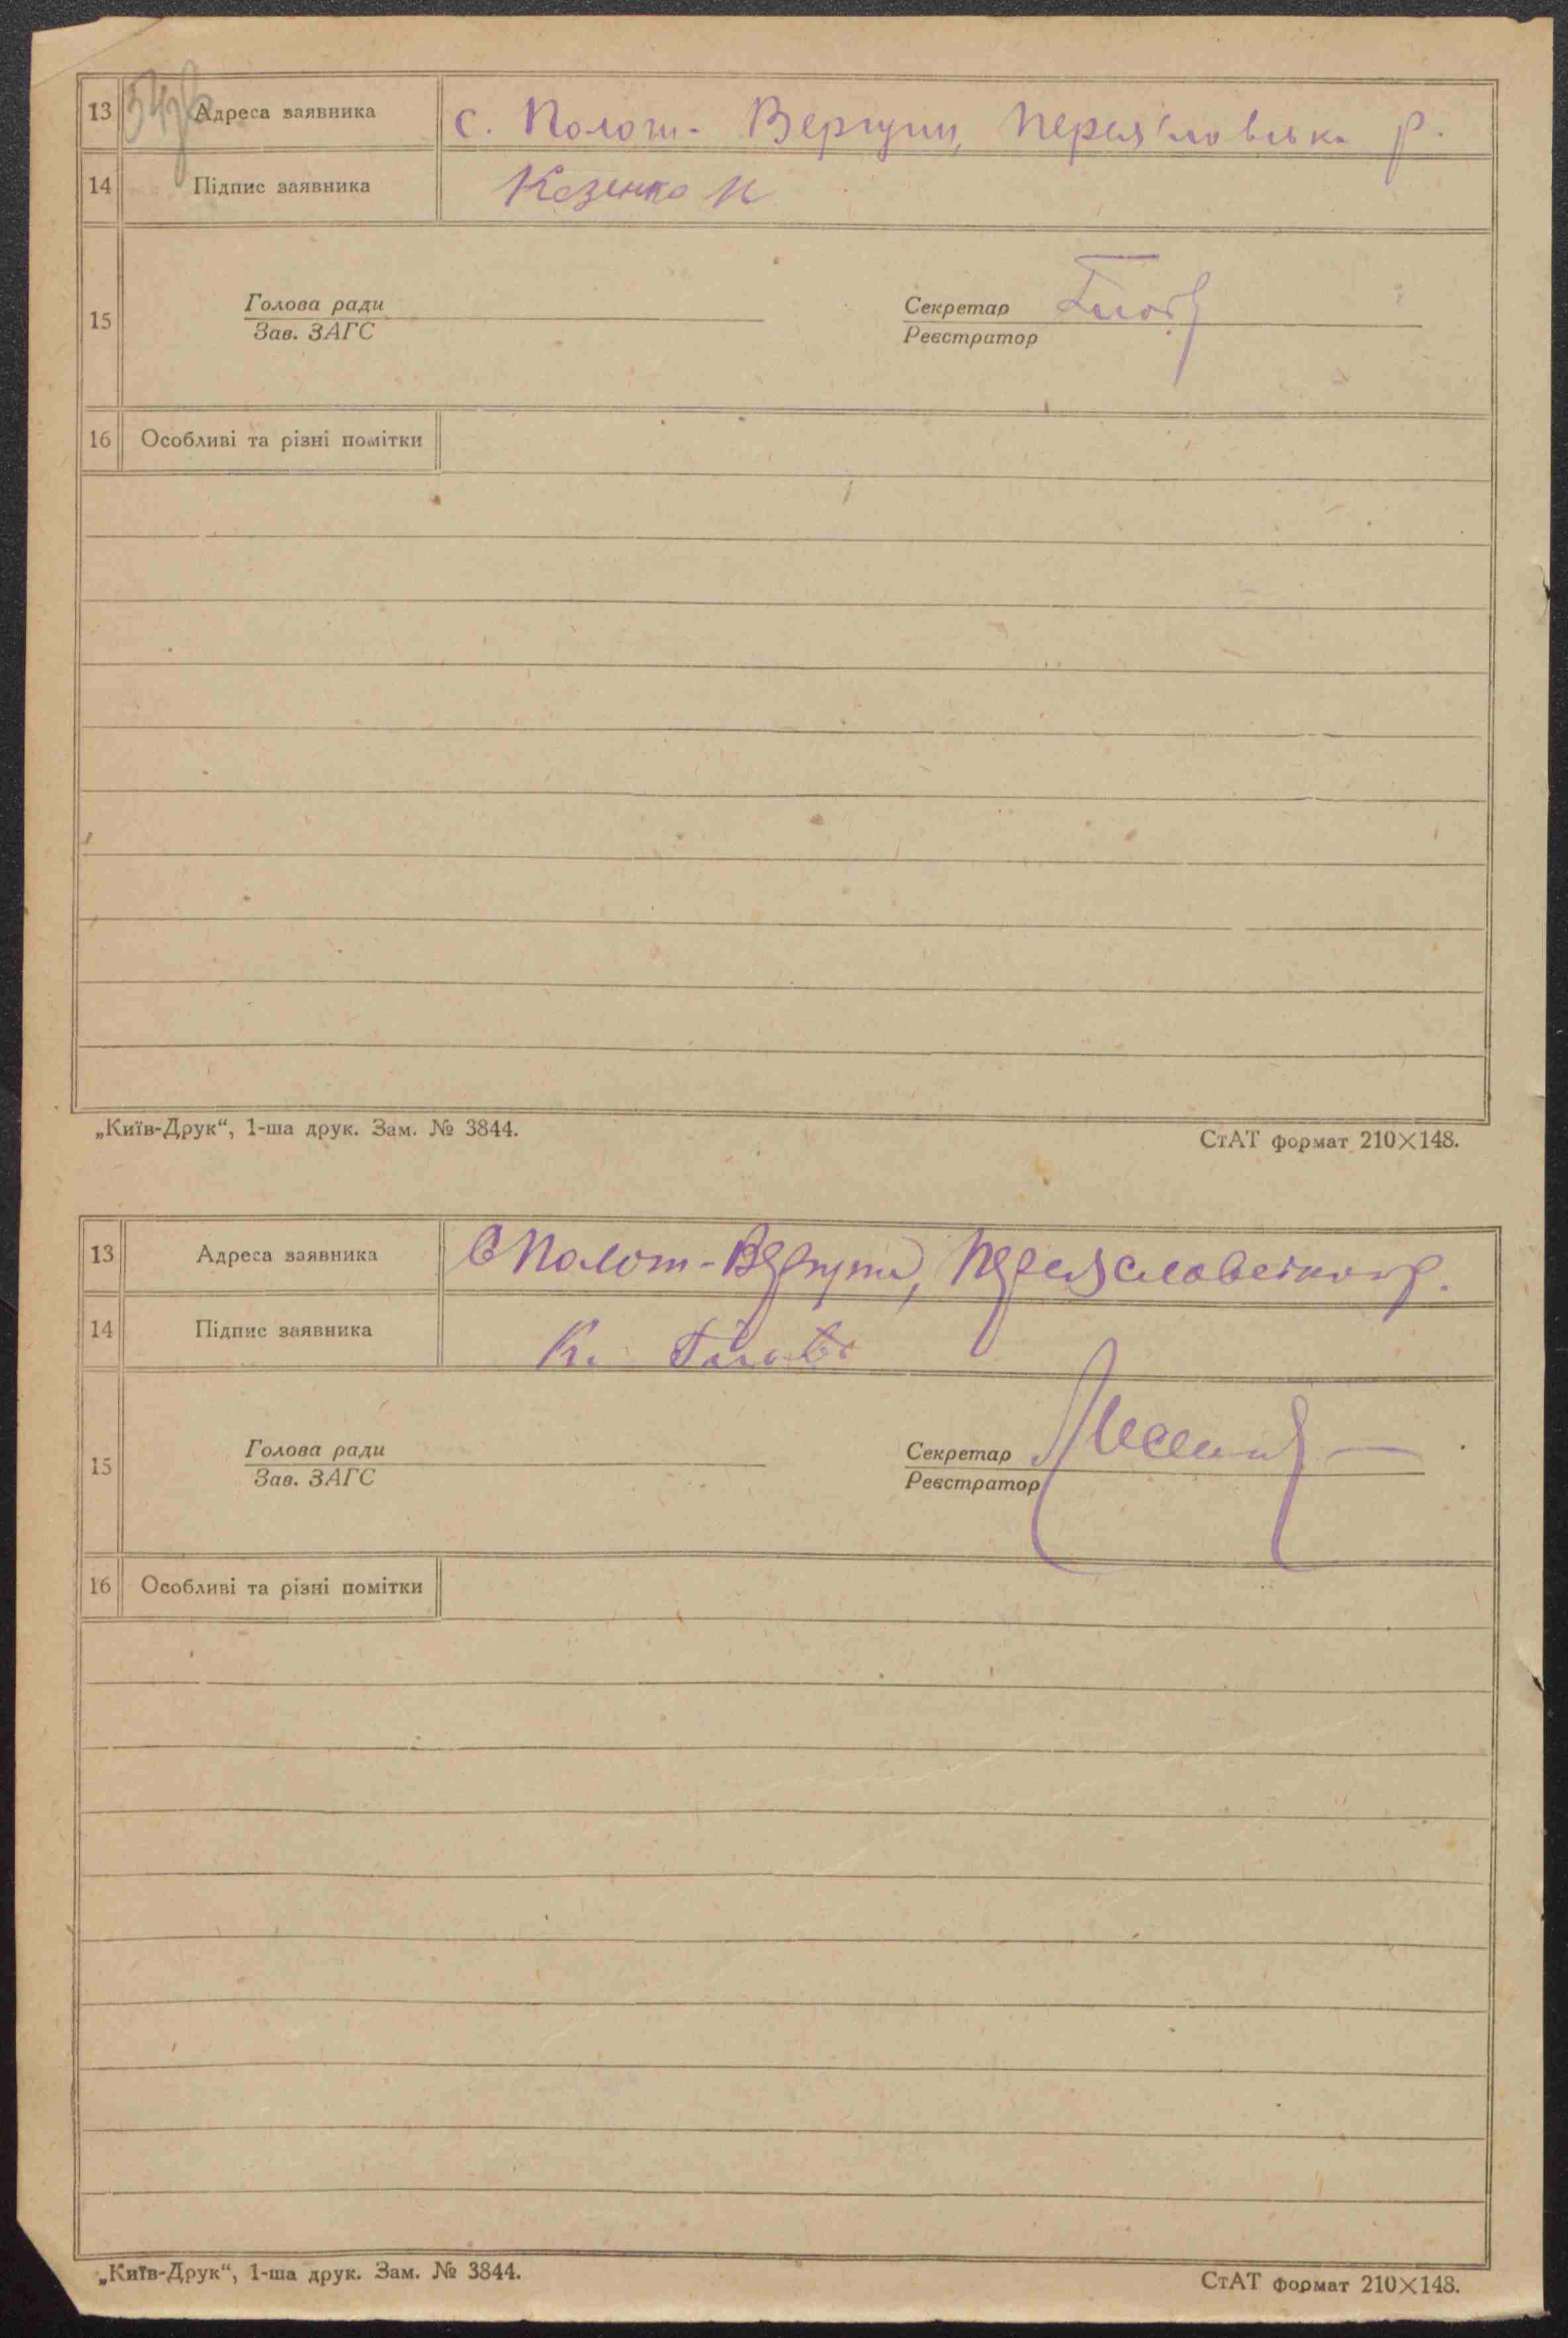 13 Адреса заявника с. Пологи-Вергуни, Переяславськ. р.
14 Підпис заявника Козенко И
15 Голова ради Секретар
Зав. ЗАГС Реєстратор
16 Особливі та різні помітки
„Київ-Друк“, 1-ша друк. Зам. № 3844. СтАТ формат 210×148.
13 Адреса заявника С Пологи-Вергуни, Переяславського р.
14 Підпис заявника К.
15 Голова ради Секретар
Зав. ЗАГС Реєстратор
16 Особливі та різні помітки
„Київ-Друк“, 1-ша друк. Зам. № 3844. СтАТ формат 210×148.